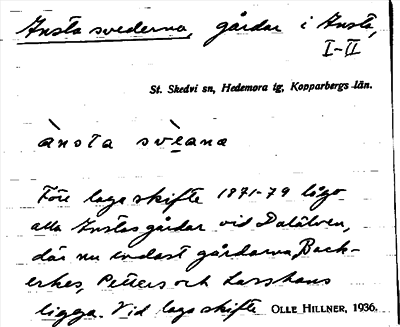 Ansta svederna, gårdar i Ansta,
I-II
St. Skedvi sn, Hedemora tg, Kopparbergs län.
ànsta svèana
Före laga skifte 1871-79 lågo
alla Anstas gårdar vid Dalälven,
där nu endast gårdarna Back-
erkes, Petters och Lasshans
ligga. Vid laga skifte OLLE HILLNER, 1936.